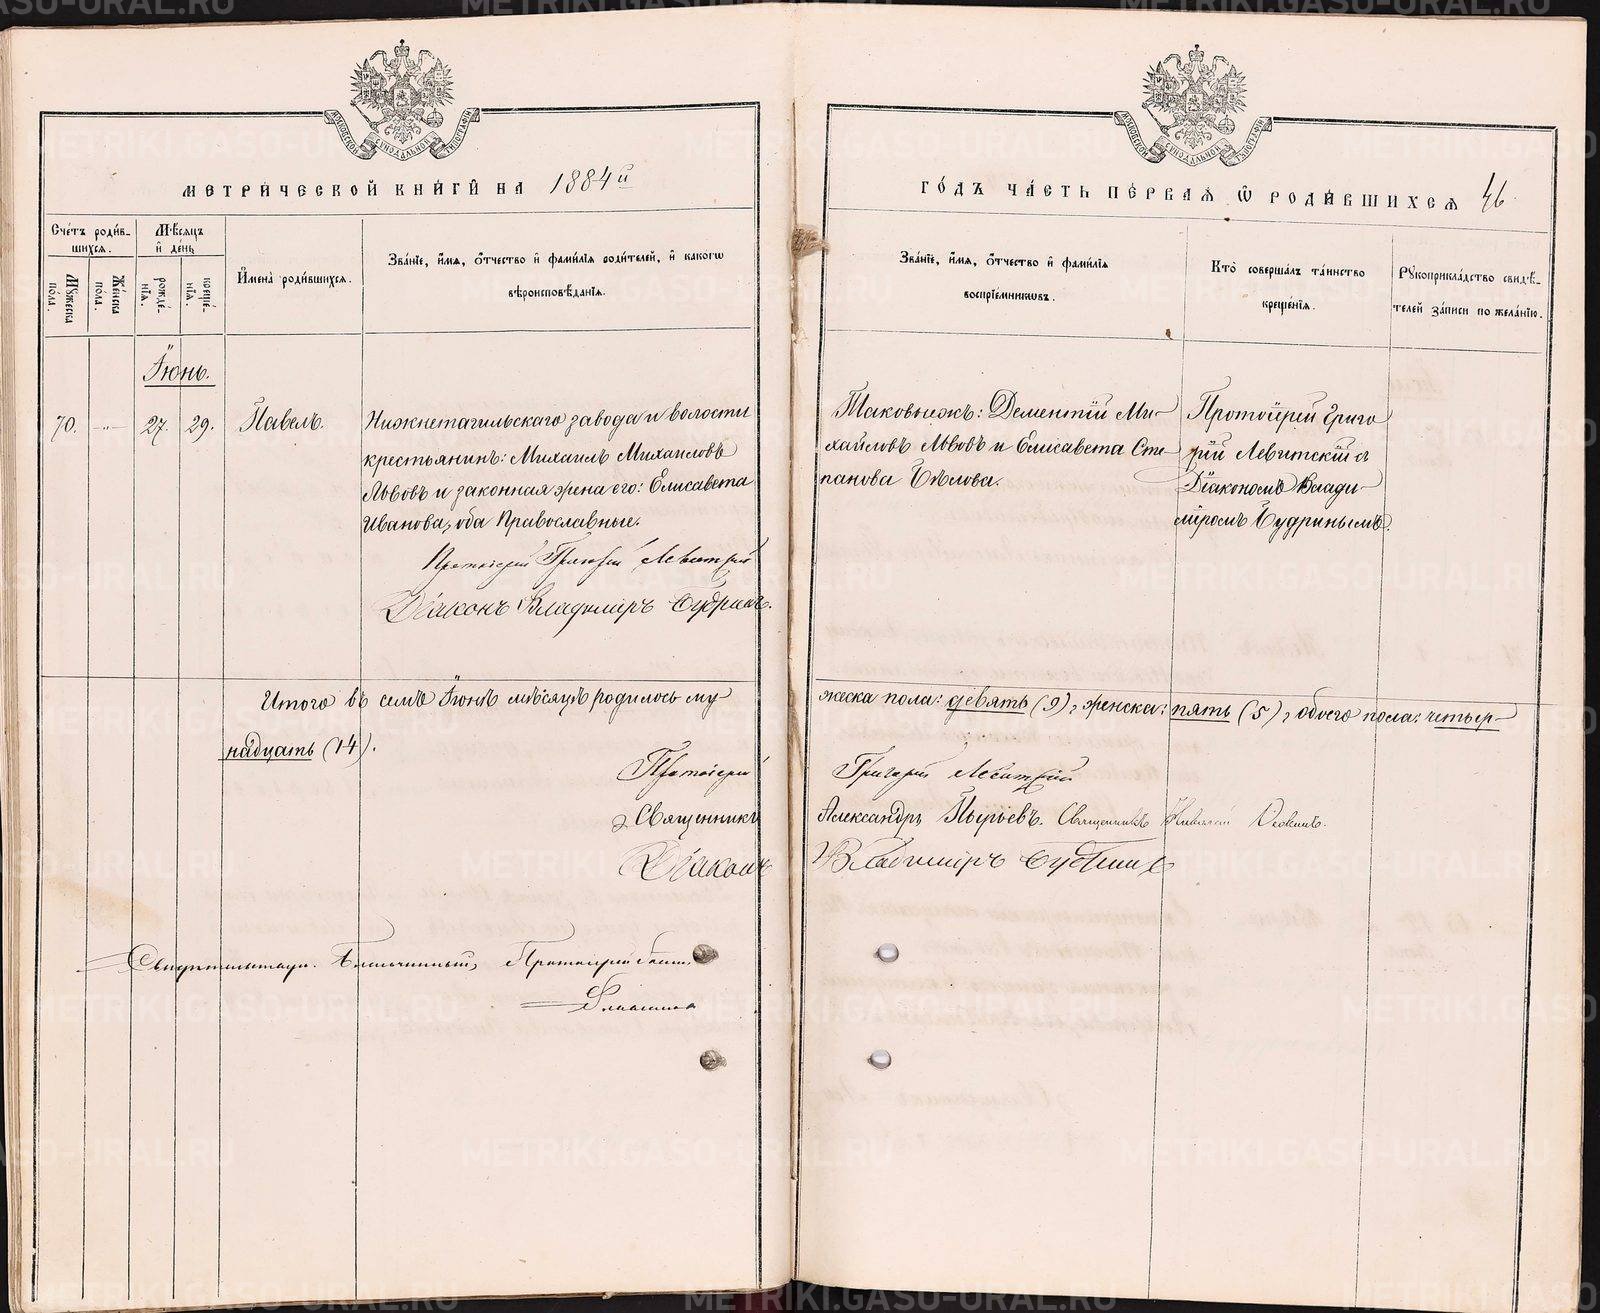 МЕТРИЧЕСКОЙ КНИГИ НА 1884й
Счетъ родив-
шихся.
Мѣсяцъ
и день
Мужеска
пола.
Женска
пола.
рожде-
нія.
креще-
нія.
Имена родившихся.
Званіе, имя, отчество и фамилія родителей, и какого
вѣроисповѣданія.
Іюнь.
70. -"- 27. 29. Павелъ.
Нижнетагильскаго завода и волости
крестьянинъ: Михаилъ Михаиловъ
Львовъ и законная жена его: Елисавета
Иванова, оба Православные.
Протоіерей Григорій Левитскій
Діаконъ Владиміръ Будринъ.
Итого въ семъ Іюнѣ мѣсяцѣ родилось му
надцать (14).
Протоіерей
Священники
Діаконъ
Свидетельствуи. Благочинный, Протоіерей
ГОДЪ ЧАСТЬ ПЕРВАЯ Ѡ РОДИВШИХСЯ 46
Званіе, имя, отчество и фамилія
воспріемниковъ.
Кто совершалъ таинство
крещенія.
Рукоприкладство свидѣ-
телей записи по желанію.
Таковыежъ: Дементій Ми-
хайловъ Львовъ и Елисавета Сте-
панова Бѣлова.
Протоіерей Григо
рій Левитскій съ
Діакономъ Влади-
міромъ Будринымъ.
жеска пола: девять (9), женска: пять (5), обоего пола: четыр-
Григорій Левитскій
Александръ Пырьевъ. Священникъ Николай
Владиміръ Будринъ
METRIKI.GASO-URAL.RU